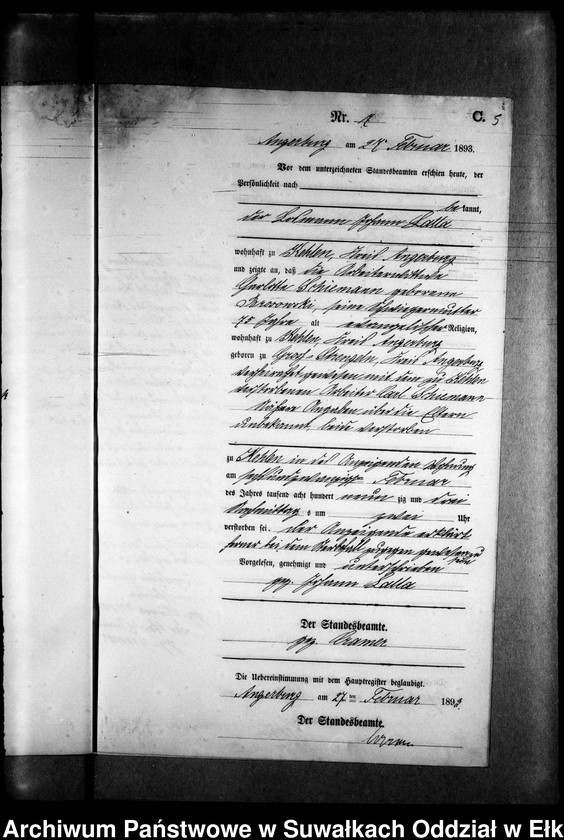 Nr. C. 5
Angerburg am 27 Februar 1893.
Vor dem unterzeichneten Standesbeamten erschien heute, der
Persönlichkeit nach
be kannt,
der Losmann Johann Latta
wohnhaft zu Kehlen, Kreis Angerburg
und zeigte an, daß die Arbeiterwittwe
Charlotte Schiemann geborene
seine Schwiegermutter
75 Jahre alt evangelischer Religion,
wohnhaft zu Kehlen, Kreis Angerburg
geboren zu Groß-Strengeln, Kreis Angerburg
verheirathet gewesen mit dem zu Kehlen
verstorbenen Arbeiter Carl Schiemann
Nähere Angaben über die Eltern
unbekannt, beide verstorben
zu Kehlen in des Anzeigenden Wohnung
am sechsundzwanzigsten Februar
des Jahres tausend acht hundert neun zig und drei
Nachmittags um zwei Uhr
verstorben sei. Der Anzeigende erklärt
ferner bei dem Sterbefall zugegen gewesen zu
sein
Vorgelesen, genehmigt und unterschrieben
gez. Johann Latta
Der Standesbeamte.
gez. Kramer
Die Uebereinstimmung mit dem Hauptregister beglaubigt.
Angerburg am 27ten Februar 1893.
Der Standesbeamte.
Archiwum Państwowe w Suwałkach Oddział w Ełku